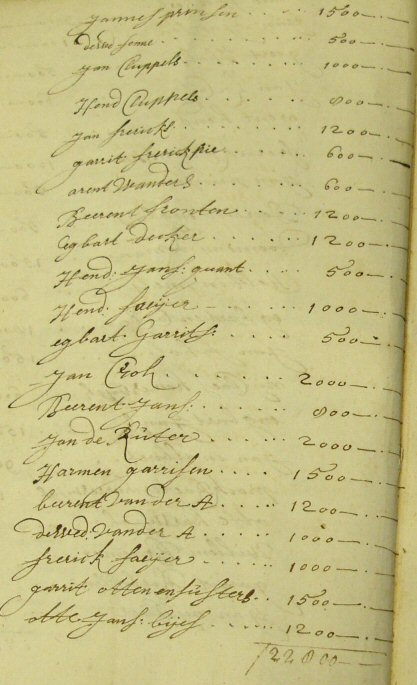 Jannes prinsen 1500
de wed fenne 500
Jan Cluppels 1000
Hend Cluppels 800
Jan frericks 1200
garrit frerick 600
arent Wanders 600
Beerent fronten 1200
Egbart decker 1200
Hend: Jans: quant 500
Hend. faeijer 1000
egbart Garrits: 500
Jan 2000
Beerent Jans: 800
Jan de Ruter 2000
Harmen garrisen 1500
berent Vander A 1200
de wed. Vander A 1000
frerick faeijer 1000
garrit otten en susters 1500
otte Jans: bijes 1200
22800